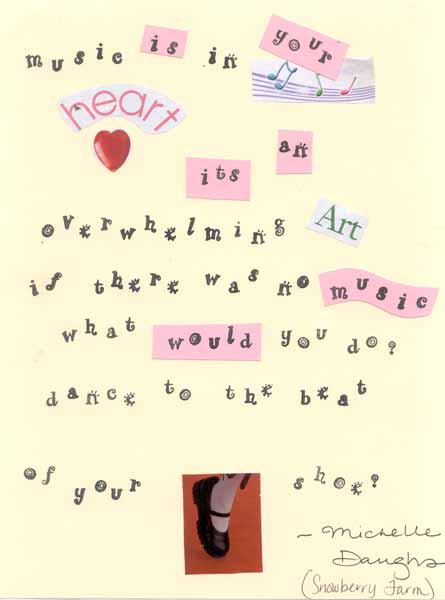 music is in your
heart
its an
overwhelming Art
if there was no music
what would you do?
dance to the beat
of your shoe?
~ Michelle
(Snowberry Farm)